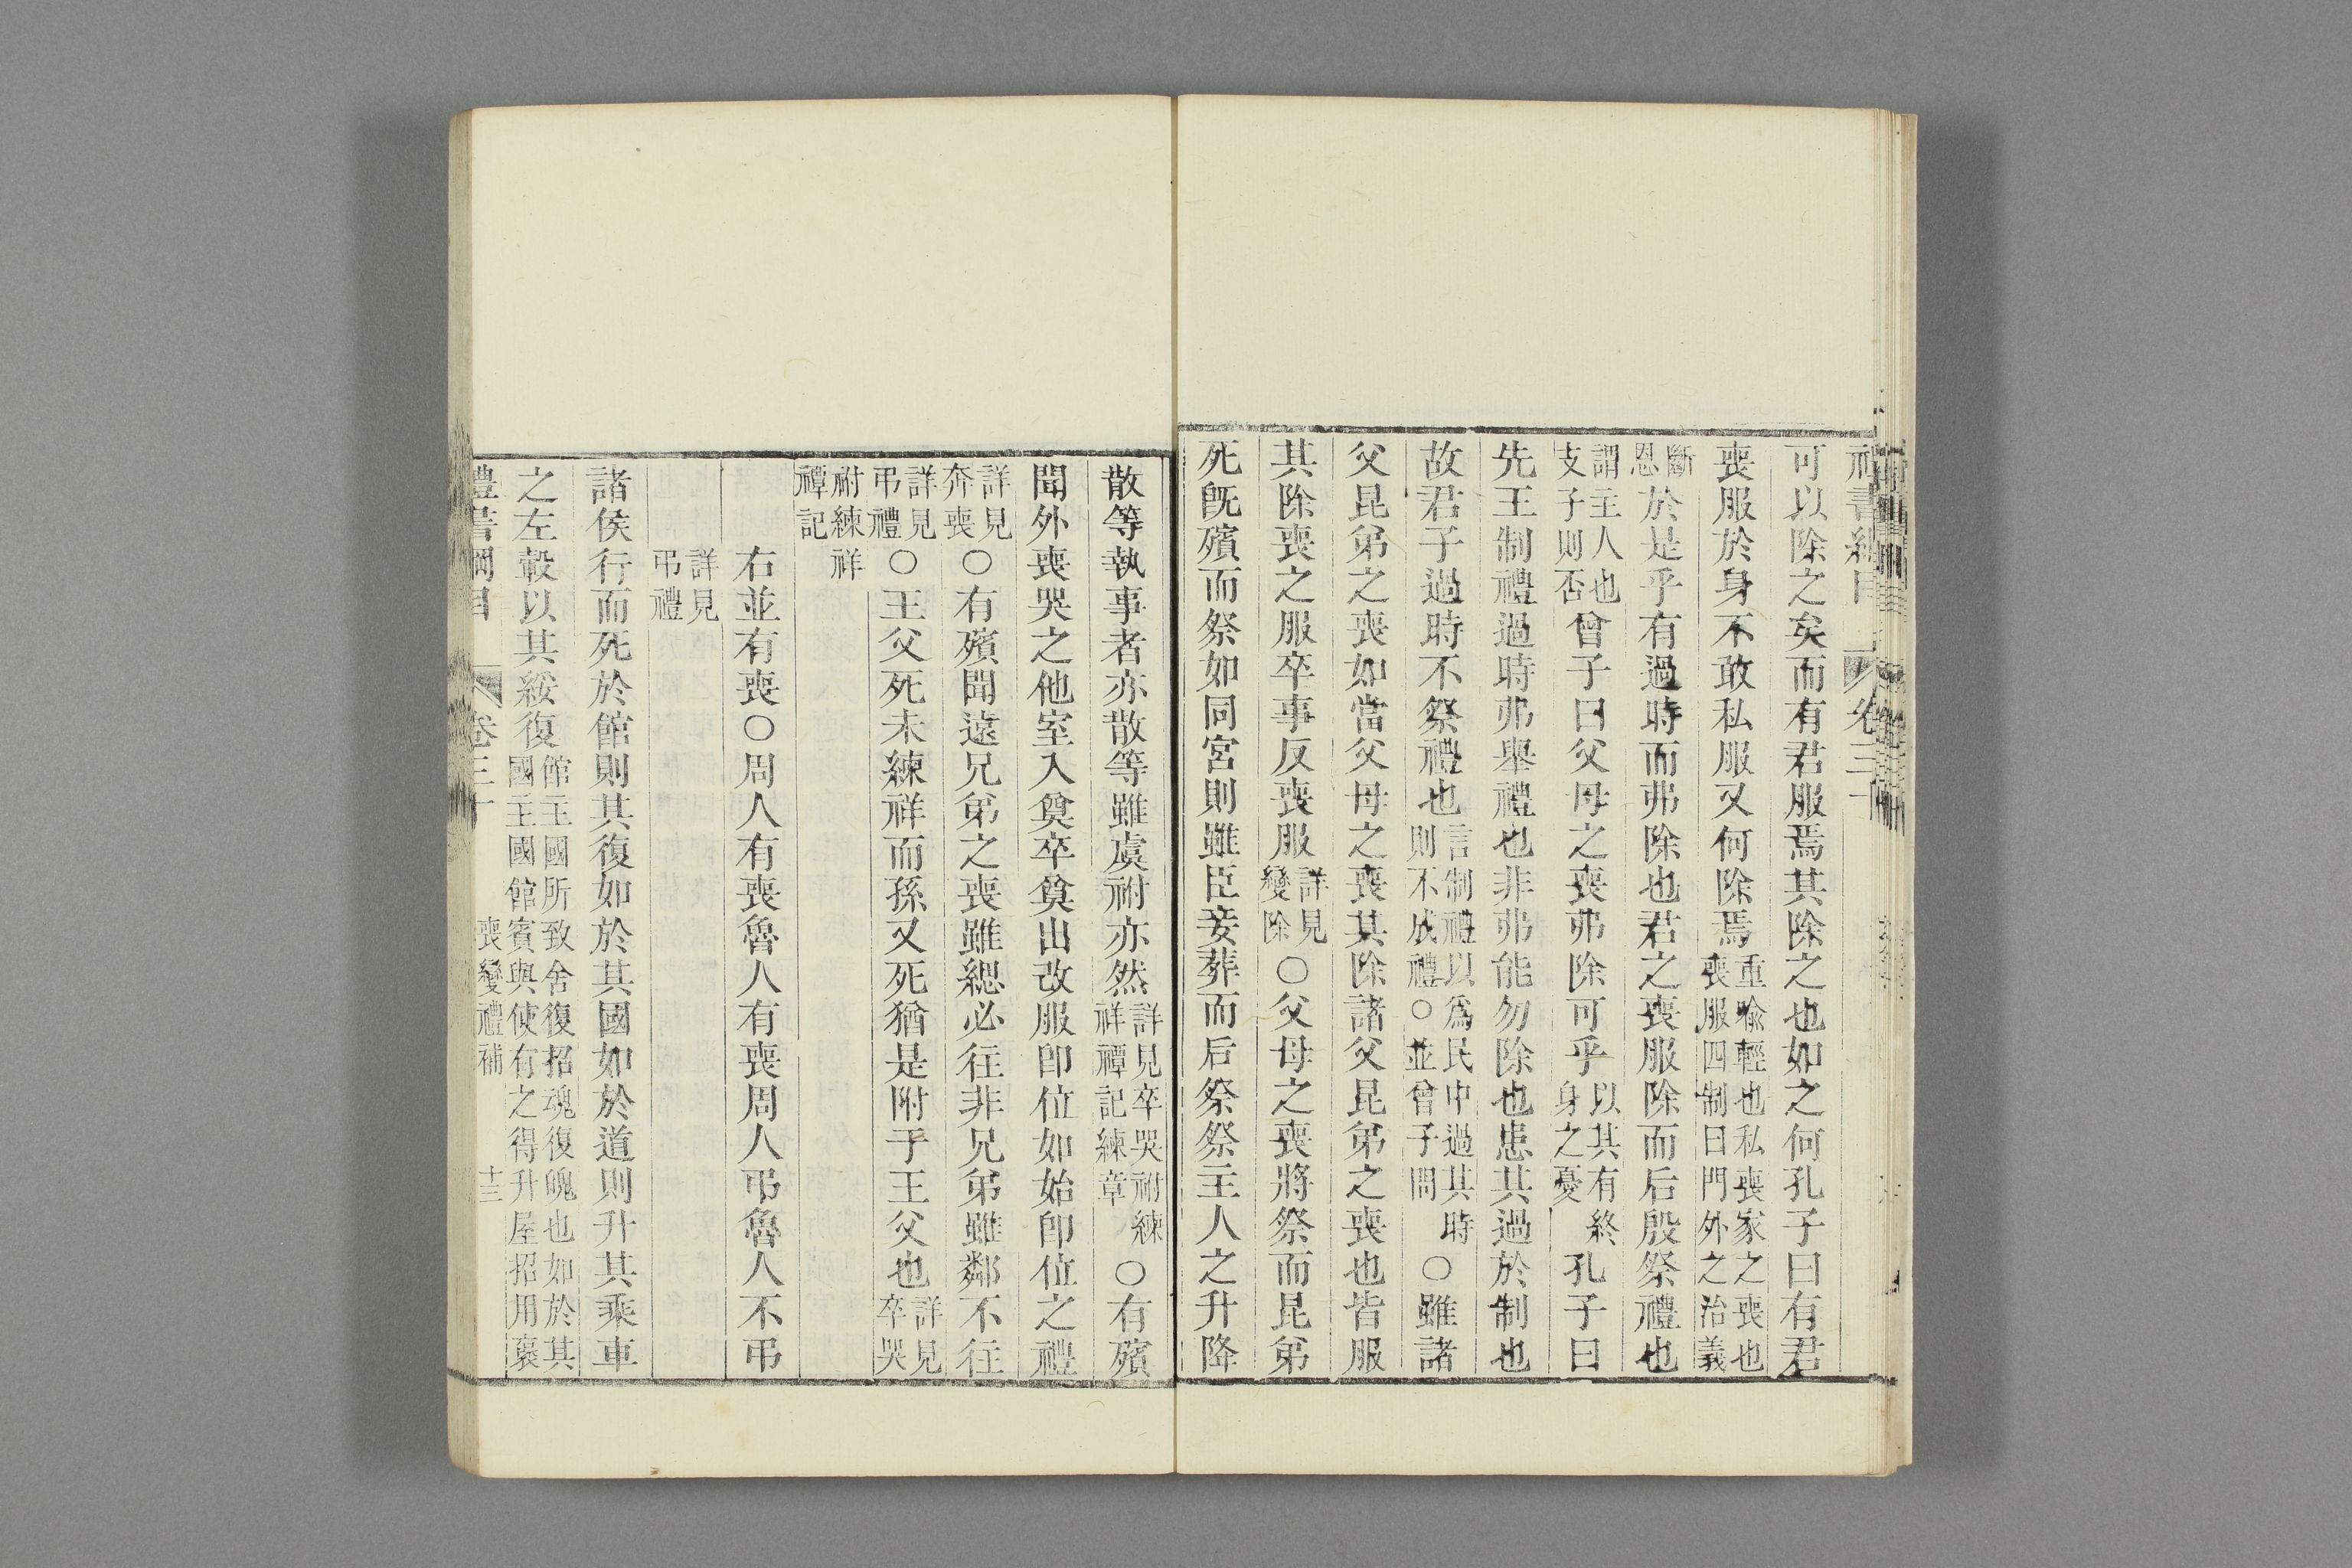 禮書綱目
卷三十
可以除之矣而有君服焉其除之也如之何孔子曰有君
喪服於身不敢私服又何除焉重喻輕也私喪家之喪也喪服四制曰門外之治義
斷恩於是乎有過時而弗除也君之喪服除而后殷祭禮也
謂主人也支子則否曾子曰父母之喪弗除可乎以其有終身之憂孔子曰
先王制禮過時弗舉禮也非弗能勿除也患其過於制也
故君子過時不祭禮也言制禮以爲民中過其時則不成禮○並曾子問○雖諸
父昆弟之喪如當父母之喪其除諸父昆弟之喪也皆服
其除喪之服卒事反喪服詳見變除○父母之喪將祭而昆弟
死旣殯而祭如同宮則雖臣妾葬而后祭祭主人之升降
散等執事者亦散等雖虞祔亦然詳見卒哭祔練祥禫記練章○有殯
聞外喪哭之他室入奠卒奠出改服卽位如始卽位之禮
詳見奔喪○有殯聞遠兄弟之喪雖緦必往非兄弟雖鄰不往
詳見弔禮○王父死未練祥而孫又死猶是附于王父也詳見卒哭
祔練祥禫記
右並有喪○周人有喪魯人有喪周人弔魯人不弔
詳見弔禮
諸侯行而死於館則其復如於其國如於道則升其乘車
之左轂以其綏復館主國所致舍復招魂復魄也如於其國主國館賓與使有之得升屋招用襃
禮書綱目
卷三十
喪變禮補
十三